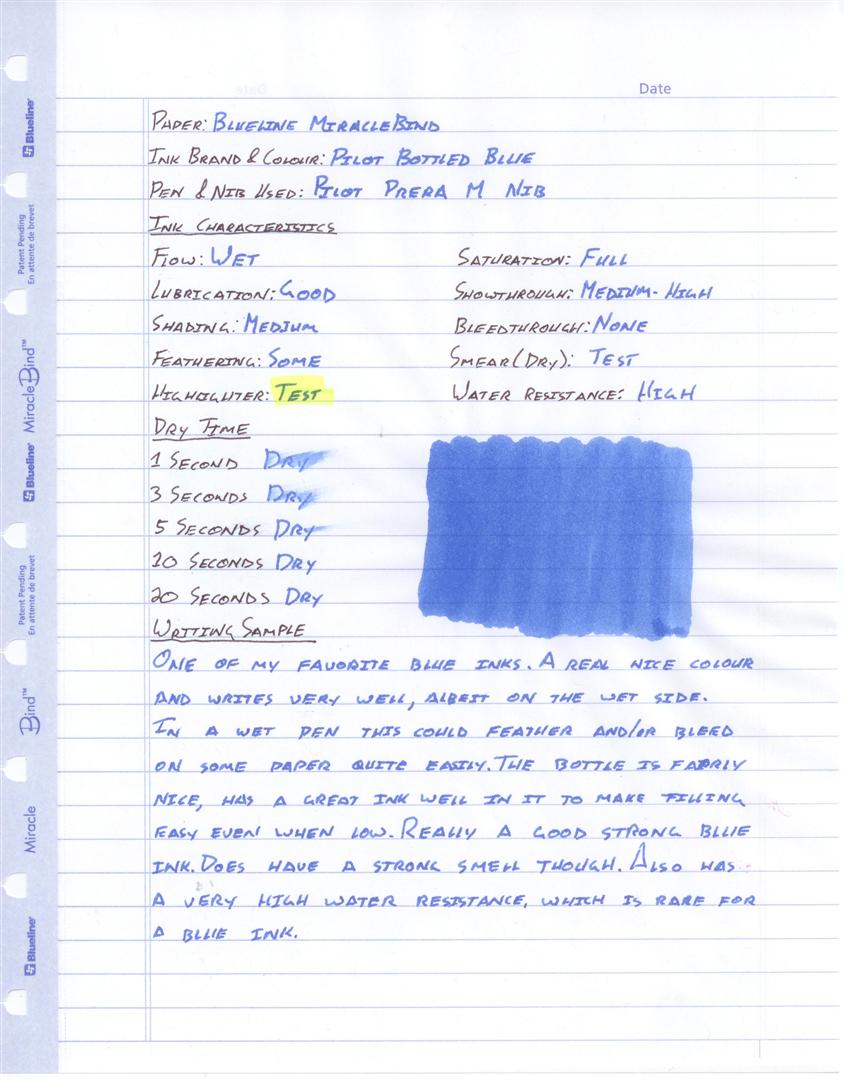 Date
PAPER: BLUELINE MIRACLEBIND
INK BRAND & COLOUR: PILOT BOTTLED BLUE
PEN & NIB USED: PILOT PRERA M NIB
INK CHARACTERISTICS
FLOW: WET SATURATION: FULL
LUBRICATION: GOOD SHOWTHROUGH: MEDIUM-HIGH
SHADING: MEDIUM BLEEDTHROUGH: NONE
FEATHERING: SOME SMEAR (DRY): TEST
HIGHLIGHTER: TEST WATER RESISTANCE: HIGH
DRY TIME
1 SECOND DRY
3 SECONDS DRY
5 SECONDS DRY
10 SECONDS DRY
20 SECONDS DRY
WRITING SAMPLE
ONE OF MY FAVORITE BLUE INKS. A REAL NICE COLOUR
AND WRITES VERY WELL, ALBEIT ON THE WET SIDE.
IN A WET PEN THIS COULD FEATHER AND/OR BLEED
ON SOME PAPER QUITE EASILY. THE BOTTLE IS FAIRLY
NICE, HAS A GREAT INK WELL IN IT TO MAKE FILLING
EASY EVEN WHEN LOW. REALLY A GOOD STRONG BLUE
INK. DOES HAVE A STRONG SMELL THOUGH. ALSO HAS
A VERY HIGH WATER RESISTANCE, WHICH IS RARE FOR
A BLUE INK.
Blueline
Patent Pending
En attente de brevet
MiracleBind™
Blueline
Patent Pending
En attente de brevet
Bind™
Miracle
Blueline